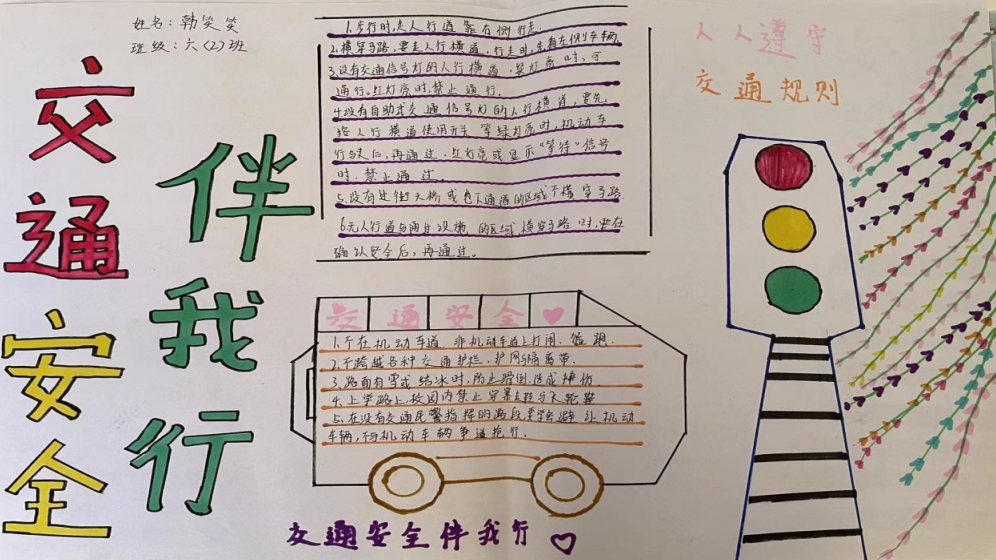 姓名：韩笑笑
班级：六（2）班
交通安全
伴我行
1.步行时，走人行道靠右侧行走.
2.横穿马路，要走人行横道.行走时，先看左侧车辆
3.没有交通信号灯的人行横道.绿灯亮时，可
通行。红灯亮时，禁止通行.
4.没有自助式交通信号灯的人行横道，要先
按人行横道使用开关 等绿灯亮时，机动车
后，再通过.红灯亮或显示“等待”信号
时.禁止通过.
5.没有过街天桥或地下通道的区域不横穿马路.
6.无人行道的区域横穿马路时，要在
确认安全后，再通过。
交通安全
1.不在机动车道 非机动车道上打闹、追跑.
2.不跨越各种交通护栏、护网与隔离带.
3.路面有雪或结冰时，防止滑倒造成摔伤.
4.上学路上，校园内禁止
5.在没有交通民警指挥的路段，要学会避让机动
车辆，不与机动车辆争道抢行.
交通安全伴我行
人人遵守
交通规则